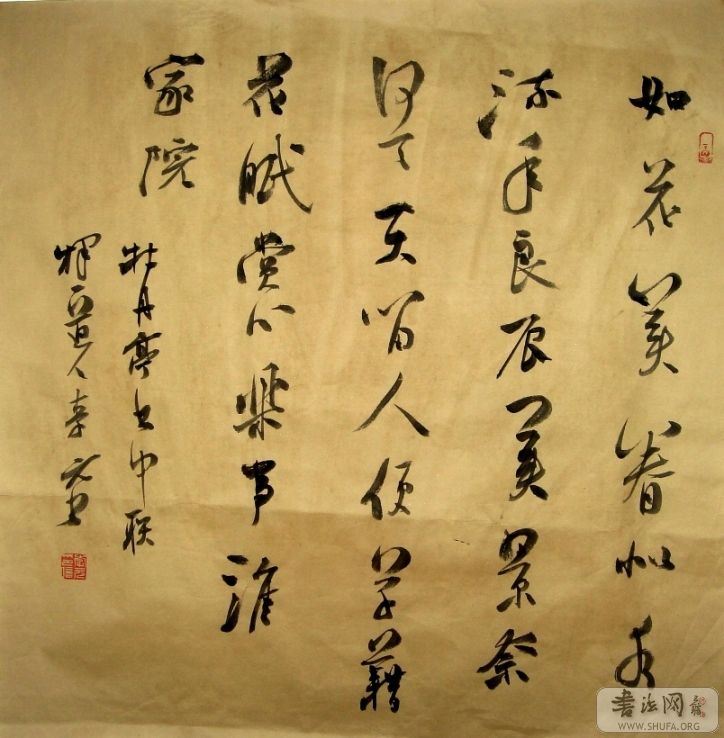 如花美眷似水
流年良辰美景奈
何天天留人便草藉
花眠赏心樂事誰
家院
牡丹亭书中联
人李
書法网
WWW.SHUFA.ORG